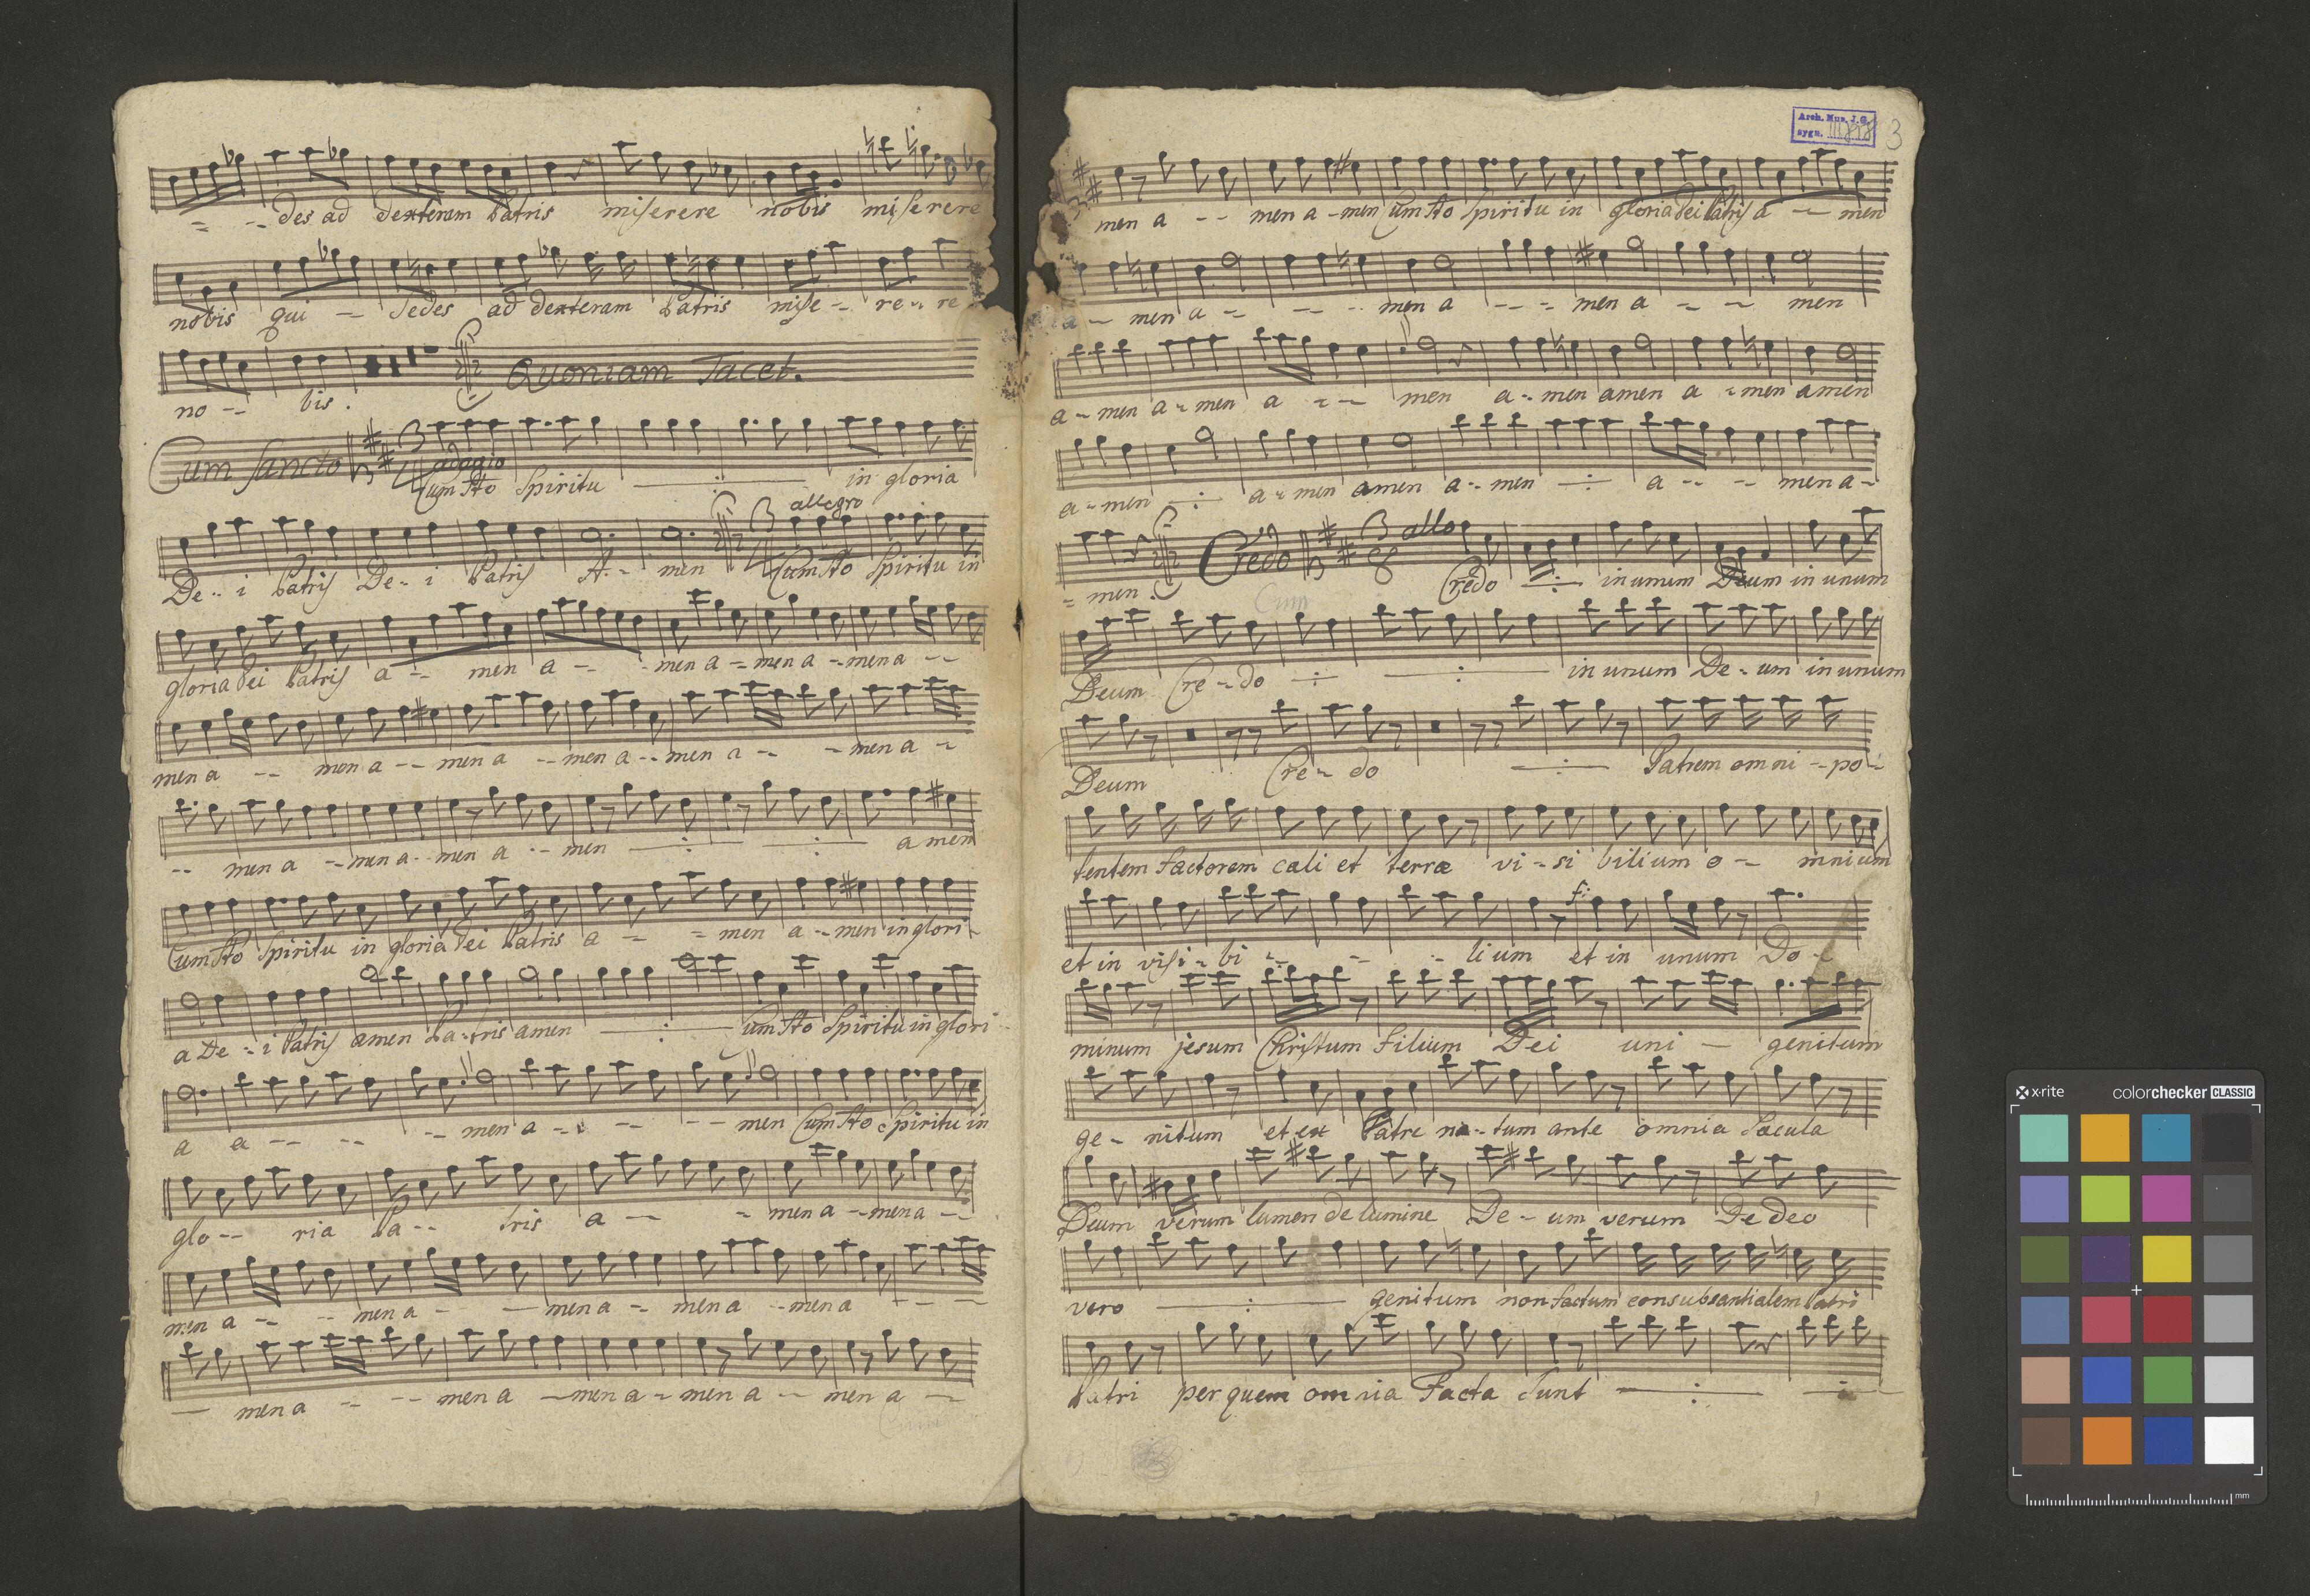 -- -- des ad dexteram Patris miserere nobis miserere
nobis qui -- sedes ad dexteram Patris mise -- re -- re
no -- bis. Quoniam Tacet.
Cum Sancto adagio Cum Sto Spiritu in gloria
allegro
De -- i Patris De -- i Patris A -- men Cum Sto Spiritu in
gloria Dei Patris a -- men a -- men a -- men a -- men a --
men a -- men a -- men a -- men a -- men a -- men a --
-- men a -- men a -- men a -- men a men
Cum Sto Spiritu in gloria Dei Patris a -- men a -- men in glori-
a De -- i Patris amen Pa -- tris amen Cum Sto Spiritu in glori-
a a -- -- -- men a -- -- -- men Cum Sto Spiritu in
glo -- ria Pa -- tris a -- -- men a -- men a --
men a -- -- men a -- -- men a -- men a -- men a -- --
-- men a -- -- men a -- men a -- men a -- men a --
Arch. Mus. J.G.
sygn. 3
3 men a -- men a - men Cum Sto Spiritu in gloria Dei Patris a -- men
a -- men a -- -- men a -- -- men a -- -- men
a -- men a -- men a -- -- men a -- men amen a -- men amen
a -- men a -- men amen a -- men a -- -- men a --
-- men. Credo 3 8 allo Credo in unum Deum in unum
Deum Cre -- do in unum De -- um in unum
Deum Cre -- do Patrem omni -- po --
tentem factorem cali et terræ vi -- si bilium o -- mnium
f:
et in visi -- bi -- -- -- lium et in unum Do --
minum jesum Christum Filium Dei uni -- genitum
ge -- nitum et ex Patre na -- tum ante omnia Sacula
Deum verum lumen de lumine De -- um verum De deo
vero genitum non factum consubsantialem Patri
Patri per quem omnia Facta Sunt
x-rite colorchecker CLASSIC
mm